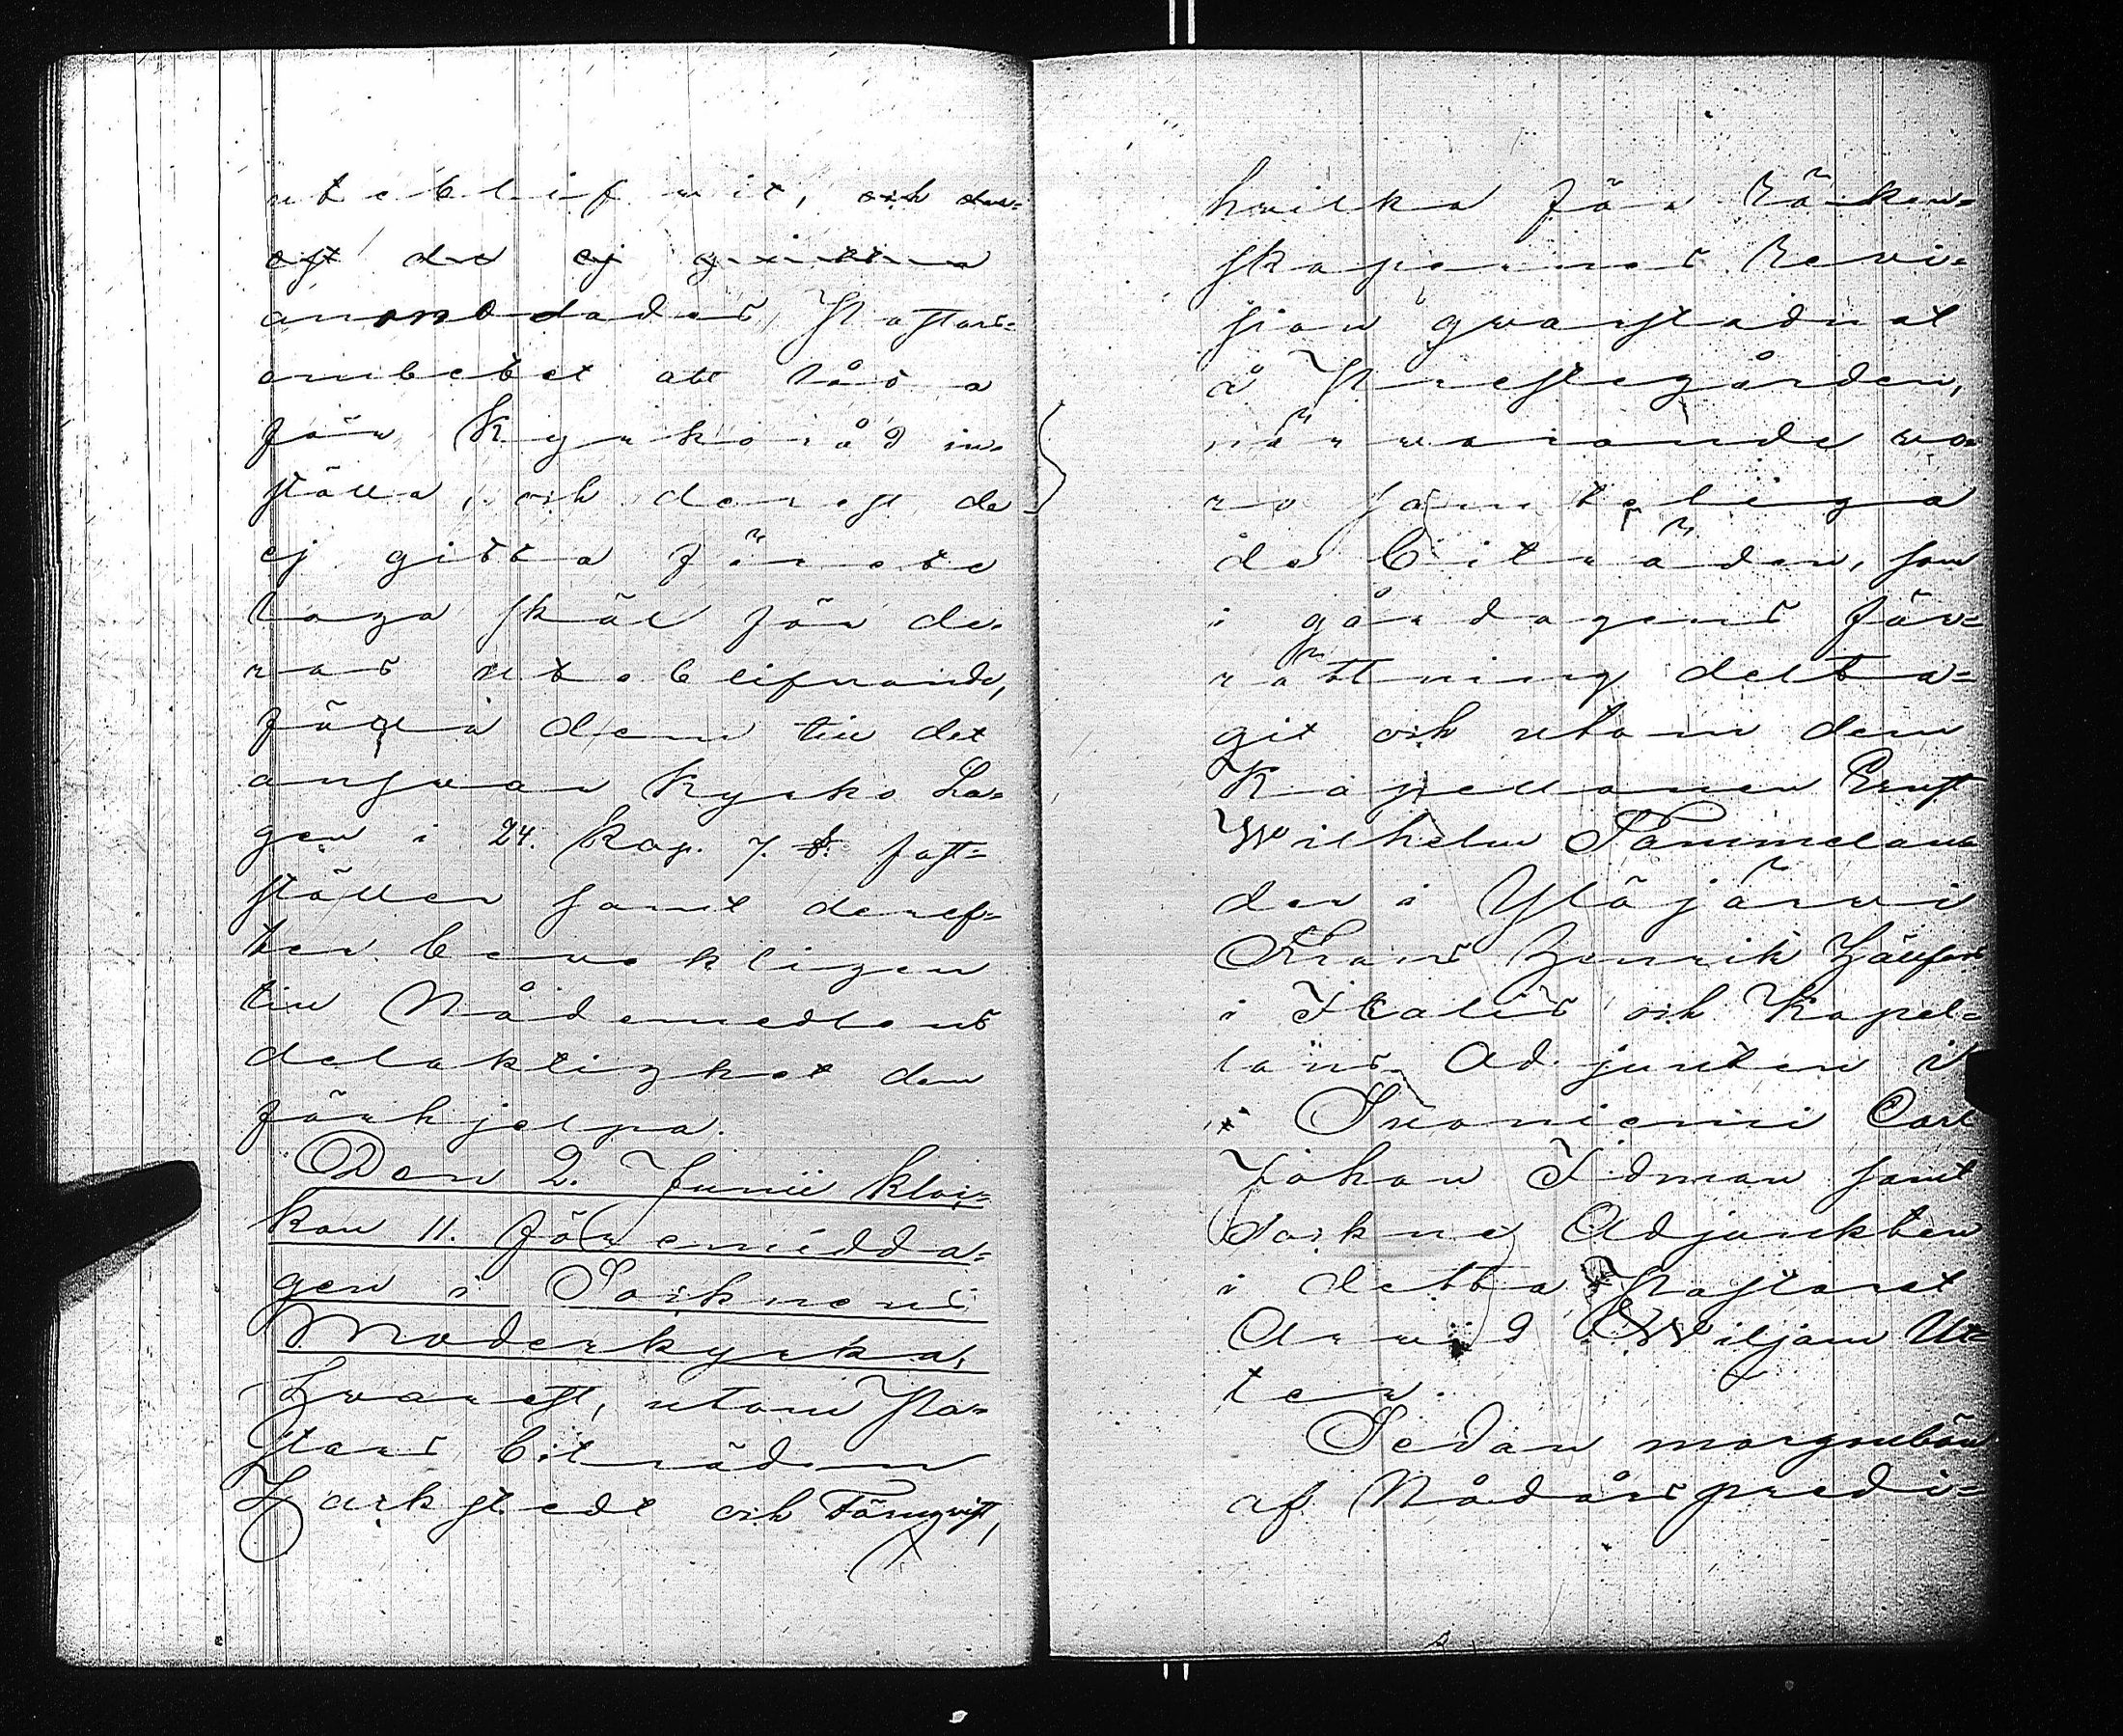 uteblifwit, och der-
est de ej gitta
anmodades Pastors-
embetet att låta
för Kyrkoråd in-
ställa, och derest de
ej gitta förete
laga skäl för de-
ras uteblifvande,
fälla dem till det
answar Kyrko La-
gen i 24. Kap. 7. §. fast-
ställer samt deref-
ter benekligen
till Nådemedlens
delaktighet dem
förhjelpa.
Den 2. Junii kloc-
kan 11. föremidda-
gen i Socknens
Moderkyrka,
Hvarest, utom Pa-
stors biträden
Zackstedt och Törnqvist,
hvilka för Räken-
skapernes Revi-
sion qvarstadnat
å Prestegården,
närvarande vo-
ro samteliga
de biträden, som
i gårdagens för-
rättning delta-
git och utom dem
Kapellanen Ernst
Wilhelm Sammelan-
der i Ylöjärvi
Frans Henrik
i Ikalis och Kapel-
lans Adjuncten
i Suoniemi Carl
Johan Idman samt
Sockne Adjunkten
i detta Pastorat
Arvid Wiljam Ut-
ter.
Sedan morgonbön
af Nådårspredi-